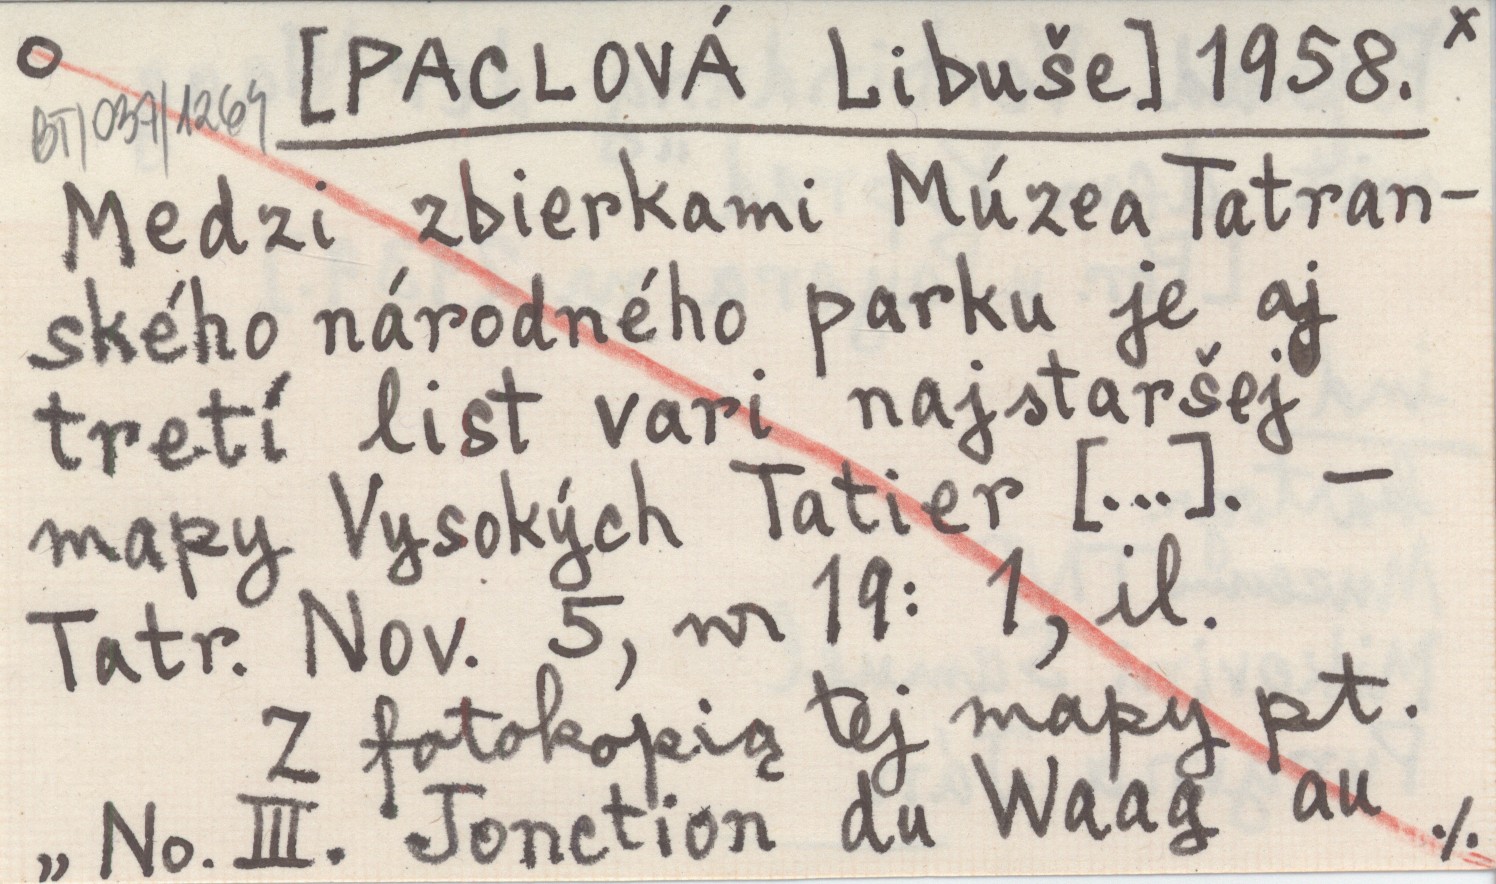 [PACLOVÁ Libuše] 1958. x
BT/037/1269
Medzi zbierkami Múzea Tatran-
ského národného parku je aj
tretí list vari najstaršej
mapy Vysokých Tatier [...]. –
Tatr. Nov. 5, nr 19: 1, il.
Z fotokopią tej mapy pt.
„No. III. Jonction du Waag au ./.